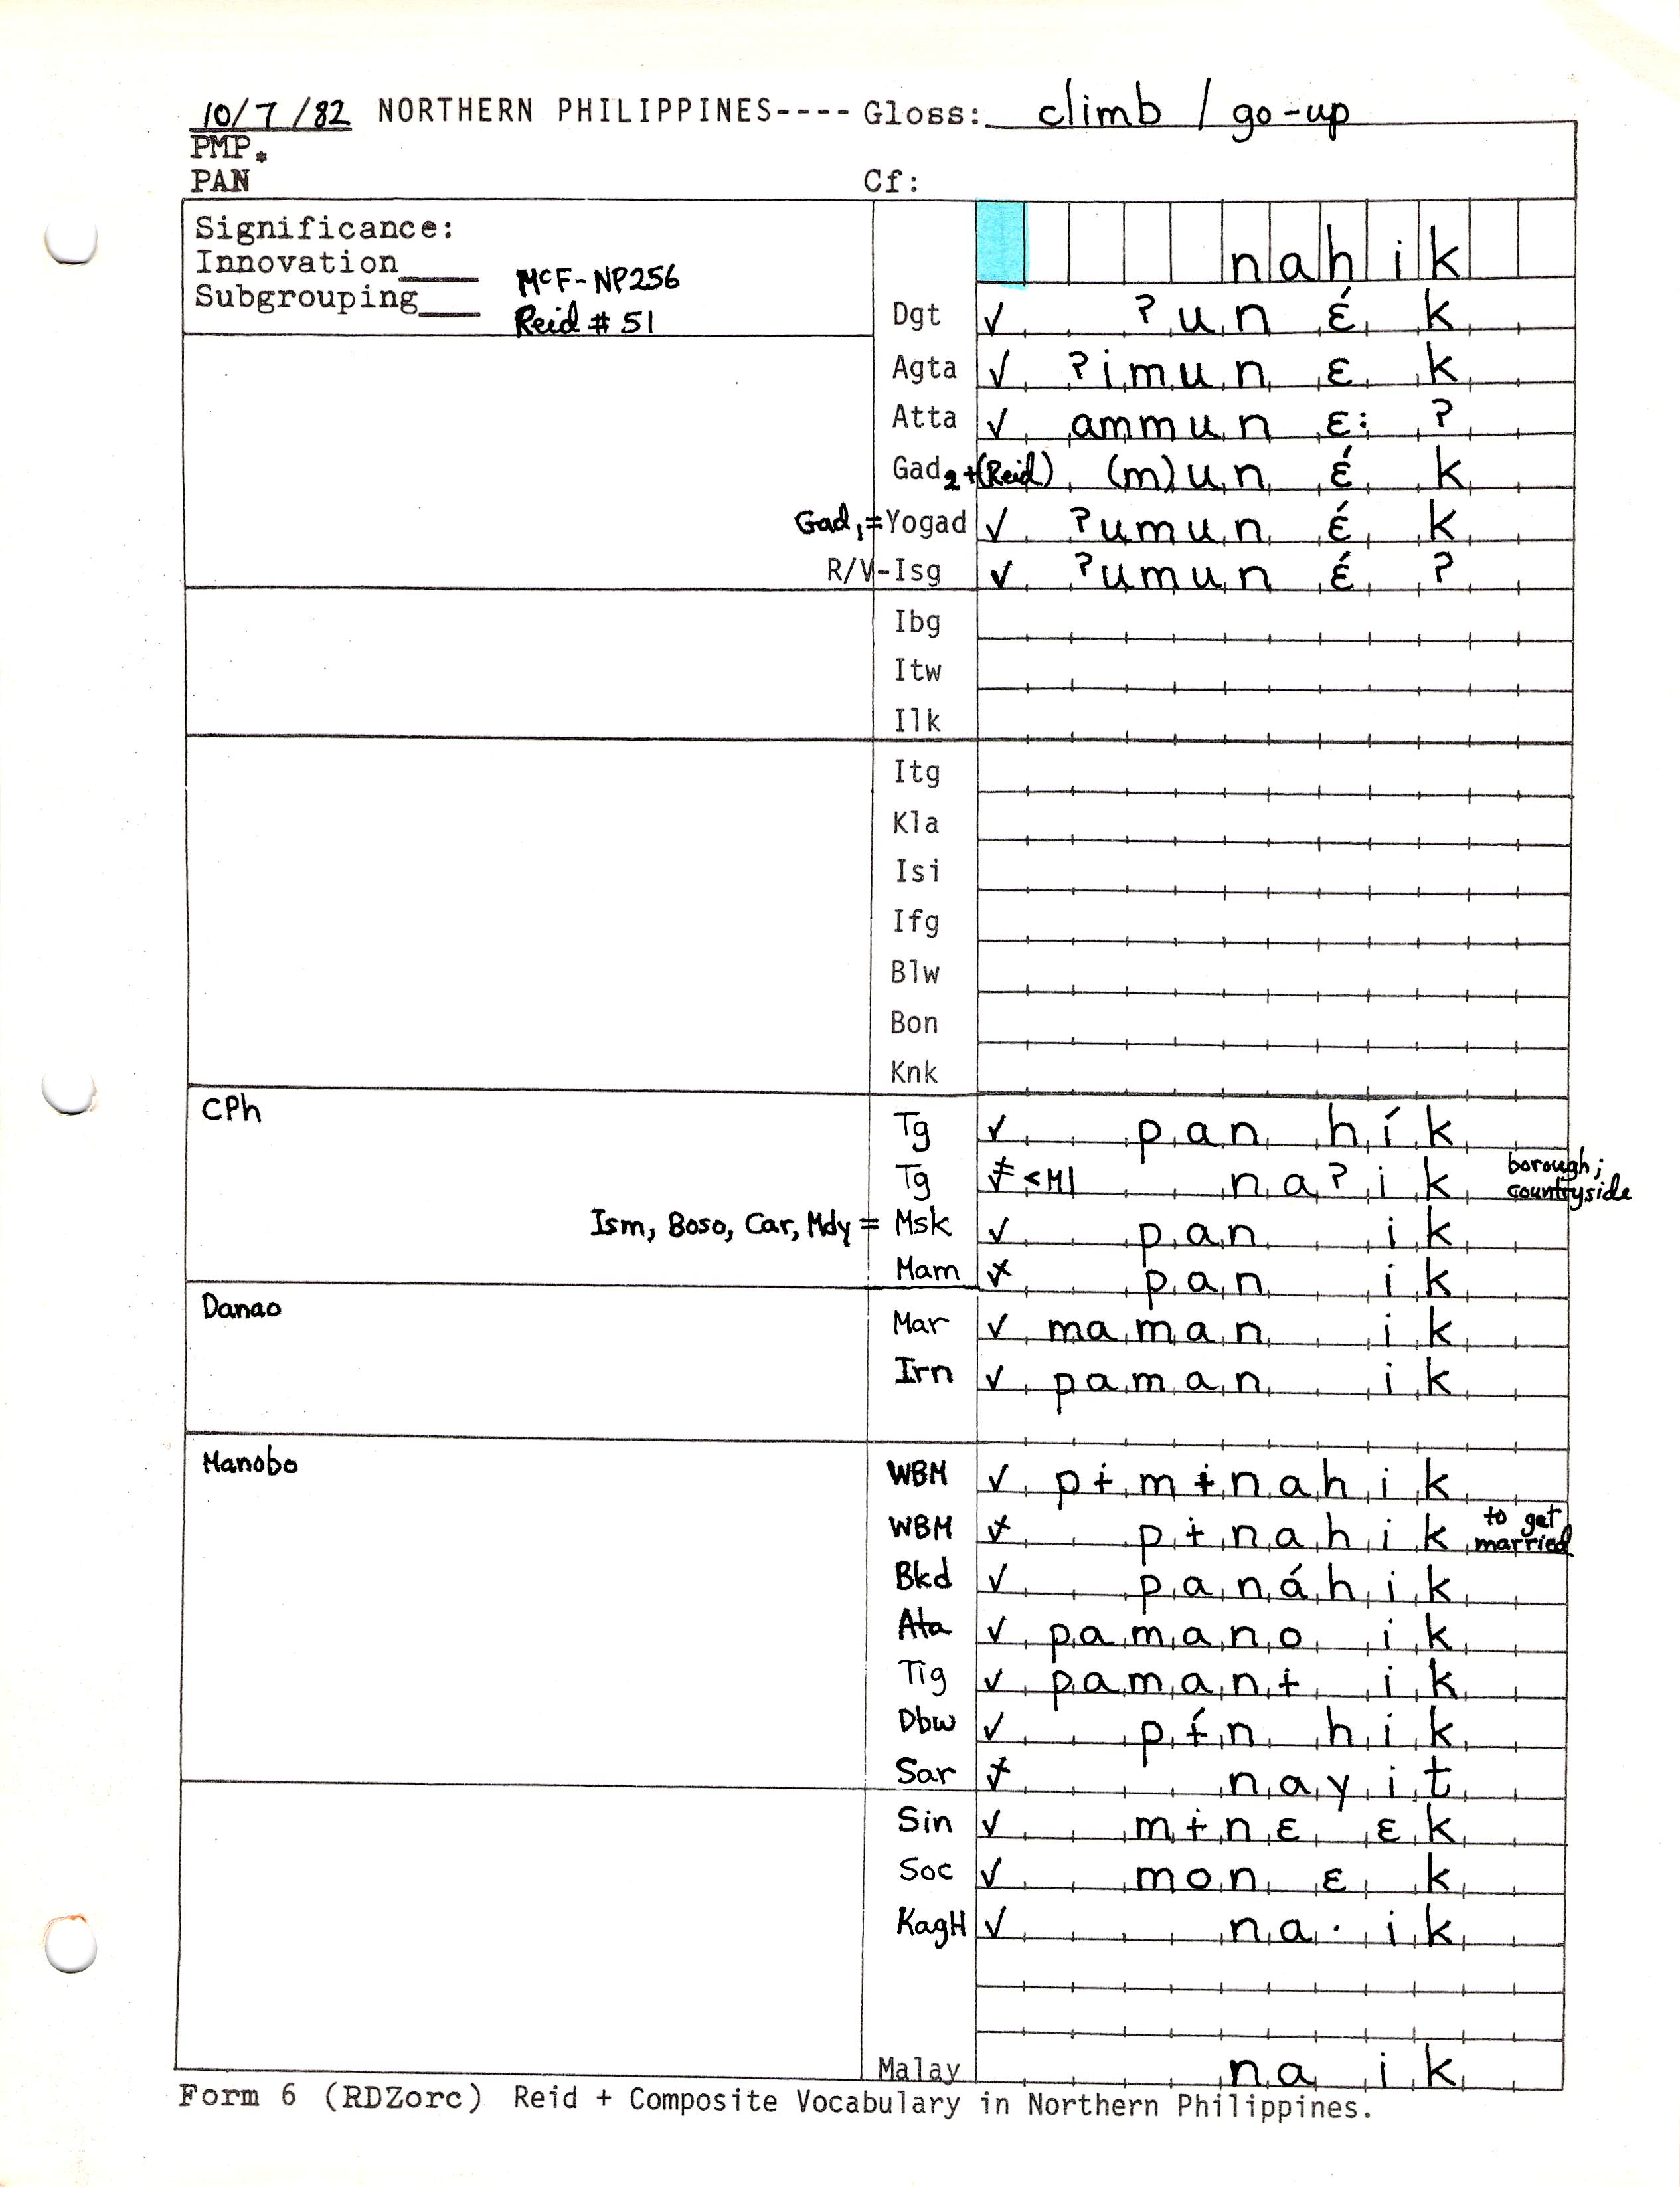 10/7/82 NORTHERN PHILIPPINES---- Gloss: climb / go-up
PMP*
PAN Cf:
Significance: nahik
Innovation____ McF-NP256
Subgrouping____ Reid # 51
Dgt ✓ ʔunɛ́k
Agta ✓ ʔimunɛk
Atta ✓ ammunɛ:ʔ
Gad2+(Reid) (m)unɛ́k
Gad1=Yogad ✓ ʔumunɛ́k
R/V-Isg ✓ ʔumunɛ́ʔ
Ibg
Itw
Ilk
Itg
Kla
Isi
Ifg
Blw
Bon
Knk
CPh Tg ✓ panhík
Tg ≠ <Ml naʔik borough; countryside
Ism, Boso, Car, Mdy = Msk ✓ panik
Mam ✓ panik
Danao Mar ✓ mamanik
Irn ✓ pamanik
Manobo WBM ✓ pɨmɨnahik
WBM ✓ pɨnahik to get married
Bkd ✓ panáhik
Ata ✓ pamanoik
Tig ✓ pamanɨik
Dbw ✓ pɨ́nhik
Sar ✓ nayit
Sin ✓ mɨnɛɛk
Soc ✓ monɛk
KagH ✓ na·ik
Malay naik
Form 6 (RDZorc) Reid + Composite Vocabulary in Northern Philippines.